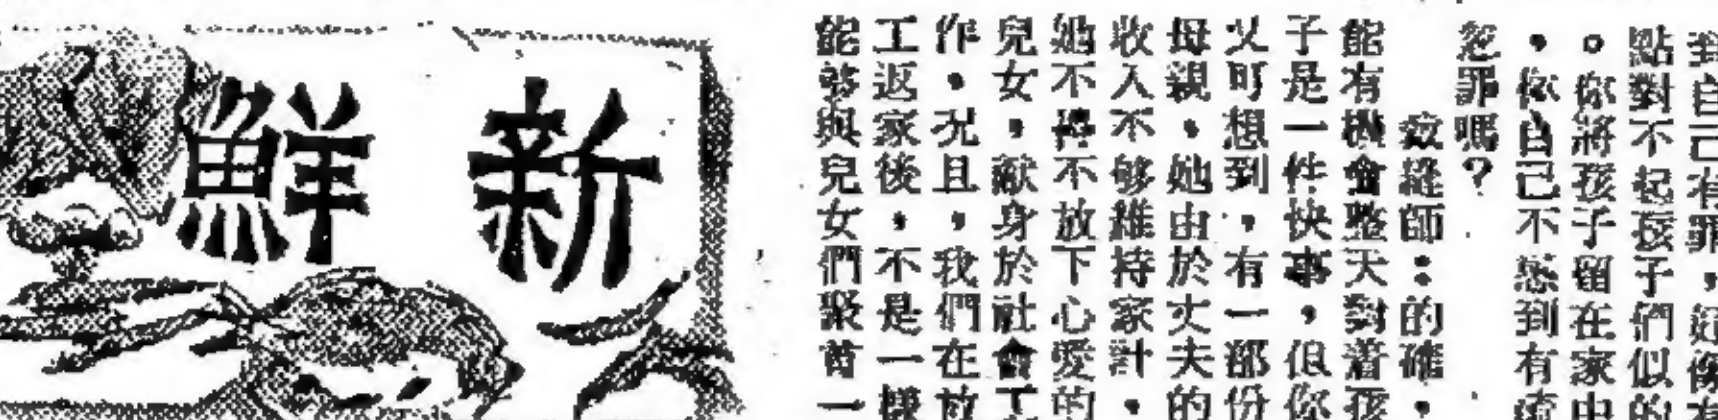 對自己有罪，好像有
點對不起孩子們似的
。你將孩子留在家中
，你自己不感到有
罪嗎？
裁縫師：的確，
能有機會整天對着孩
子是一件快事，但你
又可想到，有一部份
母親，她由於丈夫的
收入不够維持家計，
她不得不放下心愛的
兒女，獻身於社會工
作。况且，我們在放
工返家後，不是一樣
能够與兒女們聚首一
新鮮